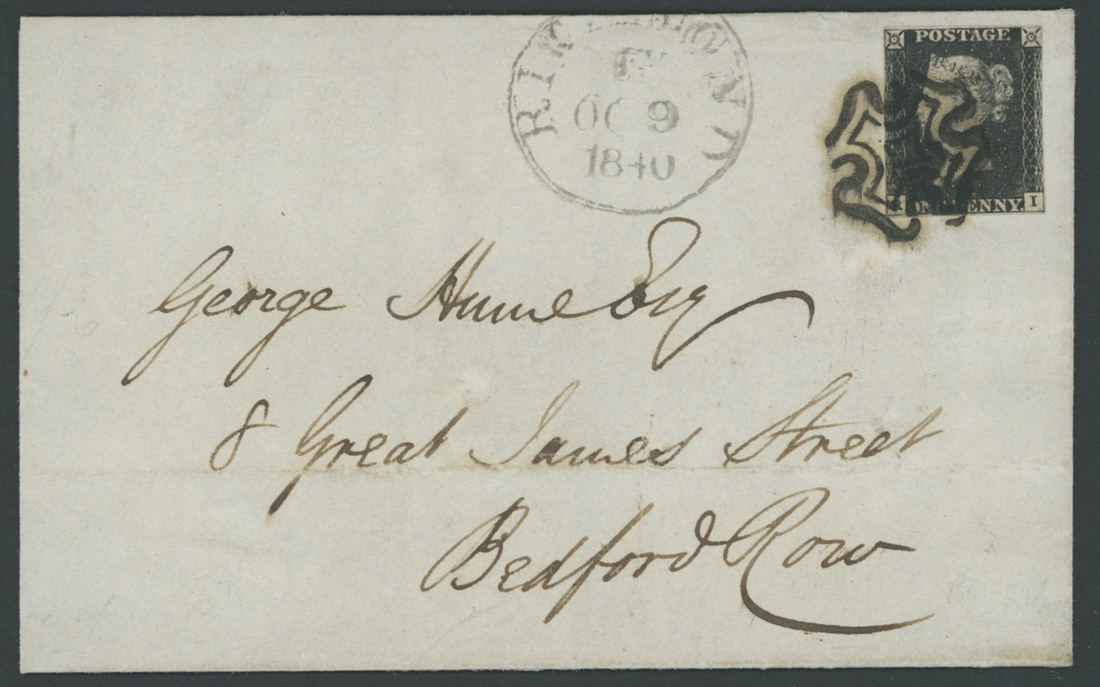 OC 9
1840
POSTAGE
ONE PENNY.
I
George Hume Esq
8 Great James Street
Bedford Row